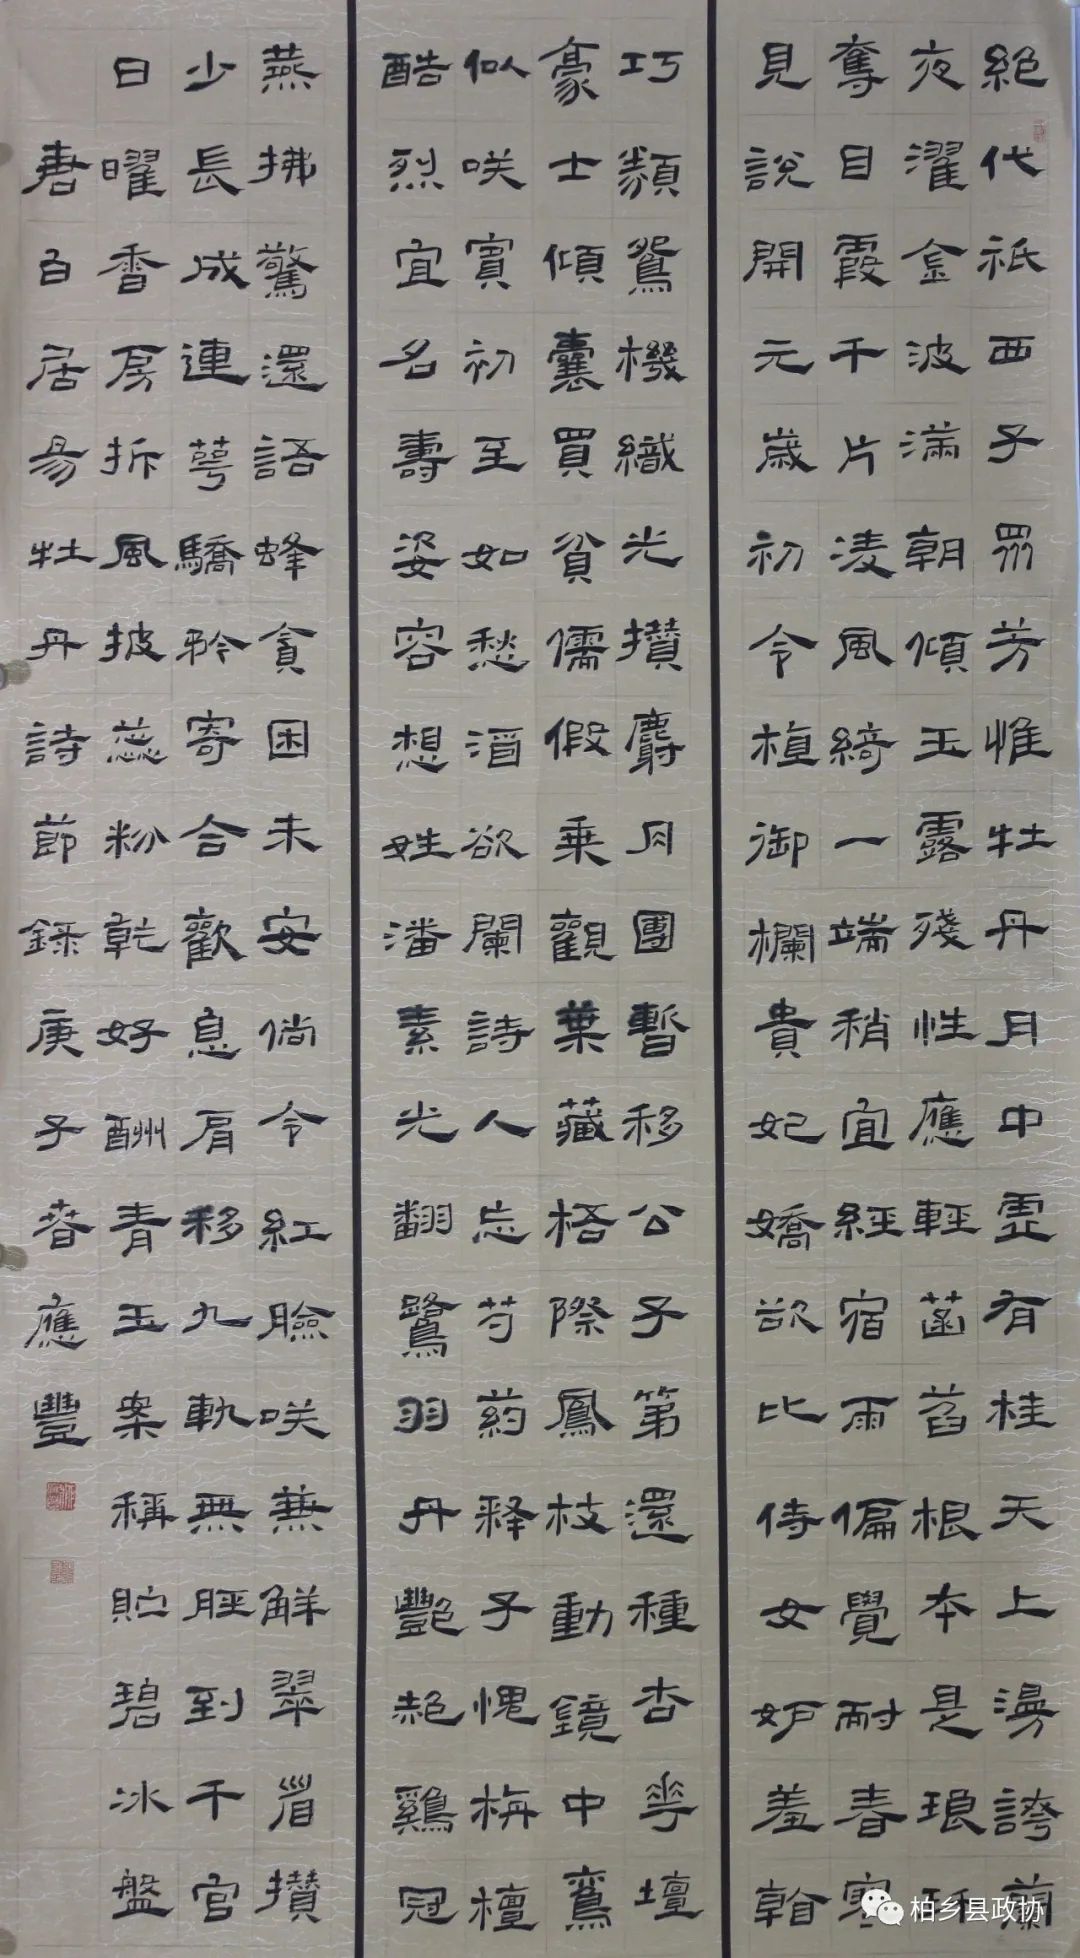 絕代祇西子眾芳惟牡丹月中虛有桂天上漫誇蘭
夜濯金波滿朝傾玉露殘性應輕菡萏根本是琅玕
奪目霞千片凌風綺一端稍宜經宿雨偏覺耐春寒
見說開元歲初令植御欄貴妃嬌欲比侍女妒羞
巧類鴛機織光攢麝月團暫移公子第還種杏花壇
豪士傾囊買貧儒假乘觀葉藏梧際鳳枝動鏡中鸞
似咲賓初至如愁酒欲闌詩人忘芍藥釋子愧栴檀
酷烈宜名壽姿容想姓潘素光翻鷺羽丹艷赩雞冠
燕拂驚還語蜂貪困未安倘令紅臉咲兼解翠眉攢
少長成連萼驕矜寄合歡息肩移九軌無脛到千官
日曜香房拆風披蕊粉乾好酬青玉案稱貯碧冰盤
唐白居易牡丹詩節錄庚子春應豐
柏乡县政协